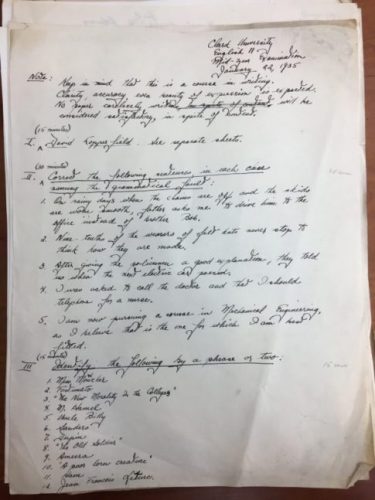 Clark University
English 11
Mid-Year Examination
January 22, 1935
Note: Keep in mind that this is a course in writing.
Clarity, accuracy and beauty of expression is expected.
No paper carelessly written in spite of content will be
considered satisfactory, in spite of content.
(15 minutes)
I. David Copperfield. See separate sheets.
(20 minutes)
II. Correct the following sentences in each case
naming the grammatical fault:
1. On rainy days when the chains are off and the skids
are worn smooth, father asks me to drive him to the
office instead of brother Bob.
2. Nine-tenths of the wearers of felt hats never stop to
think how they are made.
3. After giving the policeman a good explanation, they told
us when the next electric car passed.
4. I was asked to call the doctor and that I should
telephone for a nurse.
5. I am now pursuing a course in Mechanical Engineering,
as I believe that is the one for which I am best
fitted.
III Identify the following by a phrase or two:
1. Miss Mowcher
2.
3. "The New Morality in the Colleges"
4. M. Hamel
5. Uncle Billy
6. Sandero
7. Dupin
8. "The Old Soldier"
9. Ameera
10. "A poor lorn creatur'"
11. Ham
12. Jean Francois